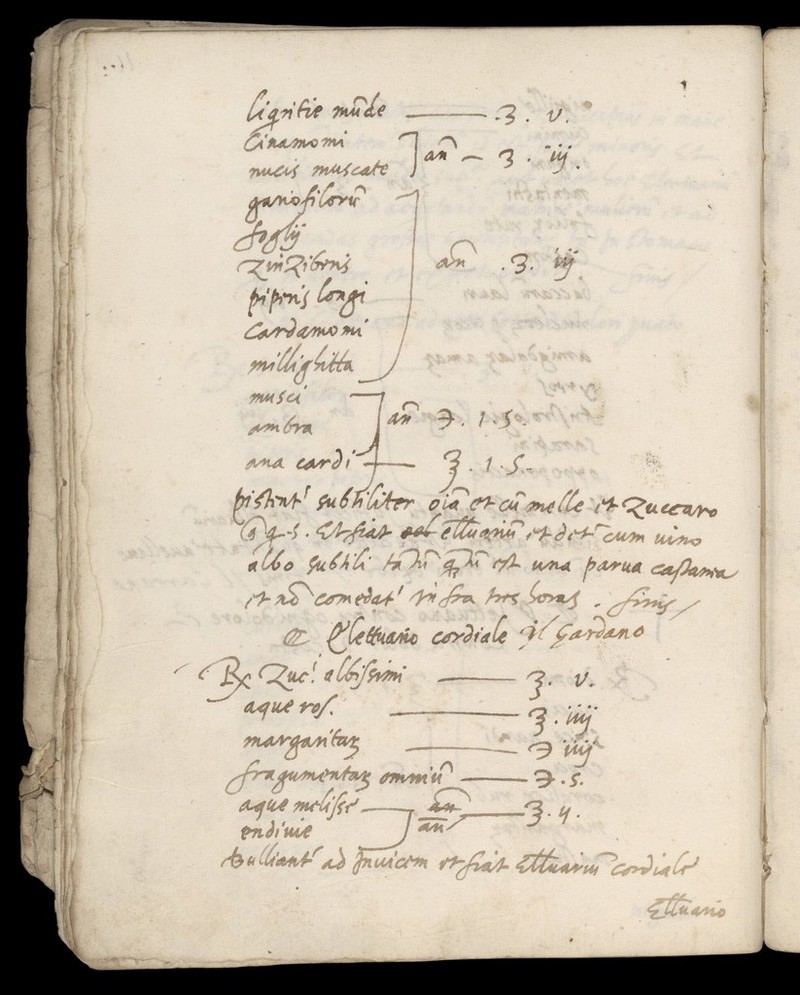 liq̃ritie mũde ——— .ʒ. v.
Cinamomi
nucis muscate ] añ — ʒ. iij.
gariofilorũ
foglij
Zinziberis añ .ʒ. iij.
piperis longi
Cardamomi
millighitta
musci
ambra ] añ ℈. 1. s.
ana cardi — ʒ. 1. s.
pistent' subtiliter oĩa et cũ melle et Zuccaro
q. s. Et fiat ell̃uariũ et det' cum vino
albo subtili tãtũ q̃tũ est una parva castanea
et nõ comedat' infra tres horas. finis/
Elettuario cordiale il Gardano
℞ Zuc.' albissimi —— ℥. v.
aque ros. ——— ℥. iiij
margaritaꝝ ——— ℈ iiij
fragumentaꝝ omniũ —— ℈. s.
aque melisse —
endivie ] añ — ℥. ij.
Bulliant' ad invicem et fiat Ell̃uariũ cordiale
Ell̃uario